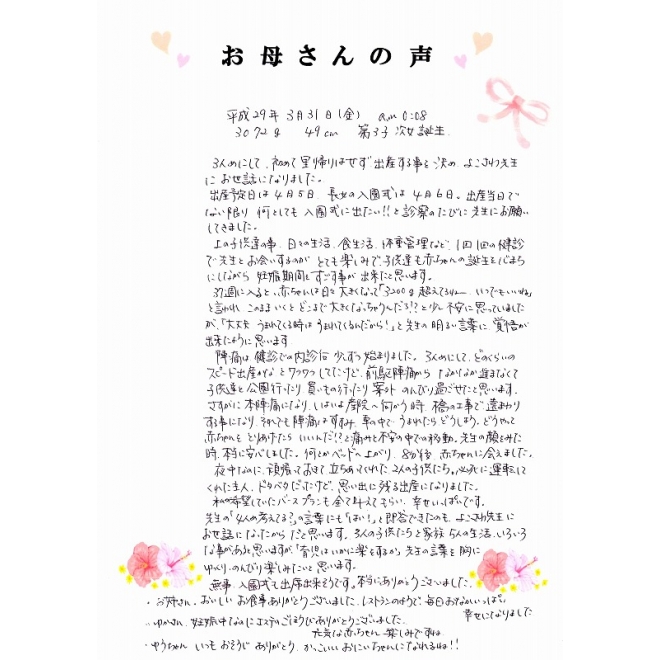 お母さんの声
平成29年 3月31日(金) am 0:08
3072g 49cm 第3子 次女誕生
3人めにして、初めて里帰りはせず出産する事を決め、よこさわ先生
にお世話になりました。
出産予定日は4月5日、長女の入園式は4月6日。出産当日で
ない限り 何としても入園式に出たい!!と診察のたびに先生にお願い
してきました。
上の子供達の事、日々の生活、食生活、体重管理など、1回1回の健診
で先生とお会いするのが とても楽しみで、子供達も赤ちゃんの誕生を
にしながら 妊娠期間をすごす事が出来たと思います。
37週に入ると、赤ちゃんは日々大きくなって「3200g超えてるね… いつでもいいね」
と言われ このままいくと どこまで大きくなっちゃうんだろ!?と少々不安に思っていました
が、「大丈夫 うまれてくる時はうまれてくるんだから!」と先生の明るい言葉に 覚悟が
出来たように思います
陣痛は 健診での内診後 少しずつ始まりました。3人めにして、どのくらいの
スピード出産かな とワクワクしてたけど、前駆陣痛から なかなか進まなくて
子供達と公園行ったり 買いもの行ったり 案外 のんびり過ごせたと思います。
さすがに本陣痛になり、いよいよ産院へ向かう時 橋の工事で遠まわり
する事になり、それでも陣痛はすすみ、車の中で うまれたらどうしよう、どうやって
赤ちゃんを とりあげたら いいんだ!?と痛みと不安の中での移動。先生の顔をみた
時、本当に安心しました。何とかベッドへ上がり、8分後 赤ちゃんに会えました。
夜中なのに、頑張っておきて立ちあってくれた 2人の子供たち。必死に運転して
くれた主人、ドタバタだったけど、思い出に残る出産になりました。
私の希望していたバースプランも全て叶えてもらい、幸せいっぱいです。
先生の「4人め考えてる?」の言葉にも「はい!」と即答できたのも、よこさわ先生に
お世話になったからだと思います。3人の子供たちと家族5人の生活、いろいろ
な事があると思いますが、「育児はいかに楽をするか」先生の言葉を胸に
ゆっくり、のんびり楽しみたいと思います。
無事、入園式も出席出来そうです。本当にありがとうございました。
・お母さん、おいしいお食事ありがとうございました。レストランのようで毎日おなかいっぱい。
幸せになりました
・ゆかさん、妊娠中なのにエステのごほうびありがとうございました。
元気な赤ちゃん 楽しみですね
・ゆうちゃん いつも おそうじ ありがとう、かっこいいおにいちゃんになれるね!!